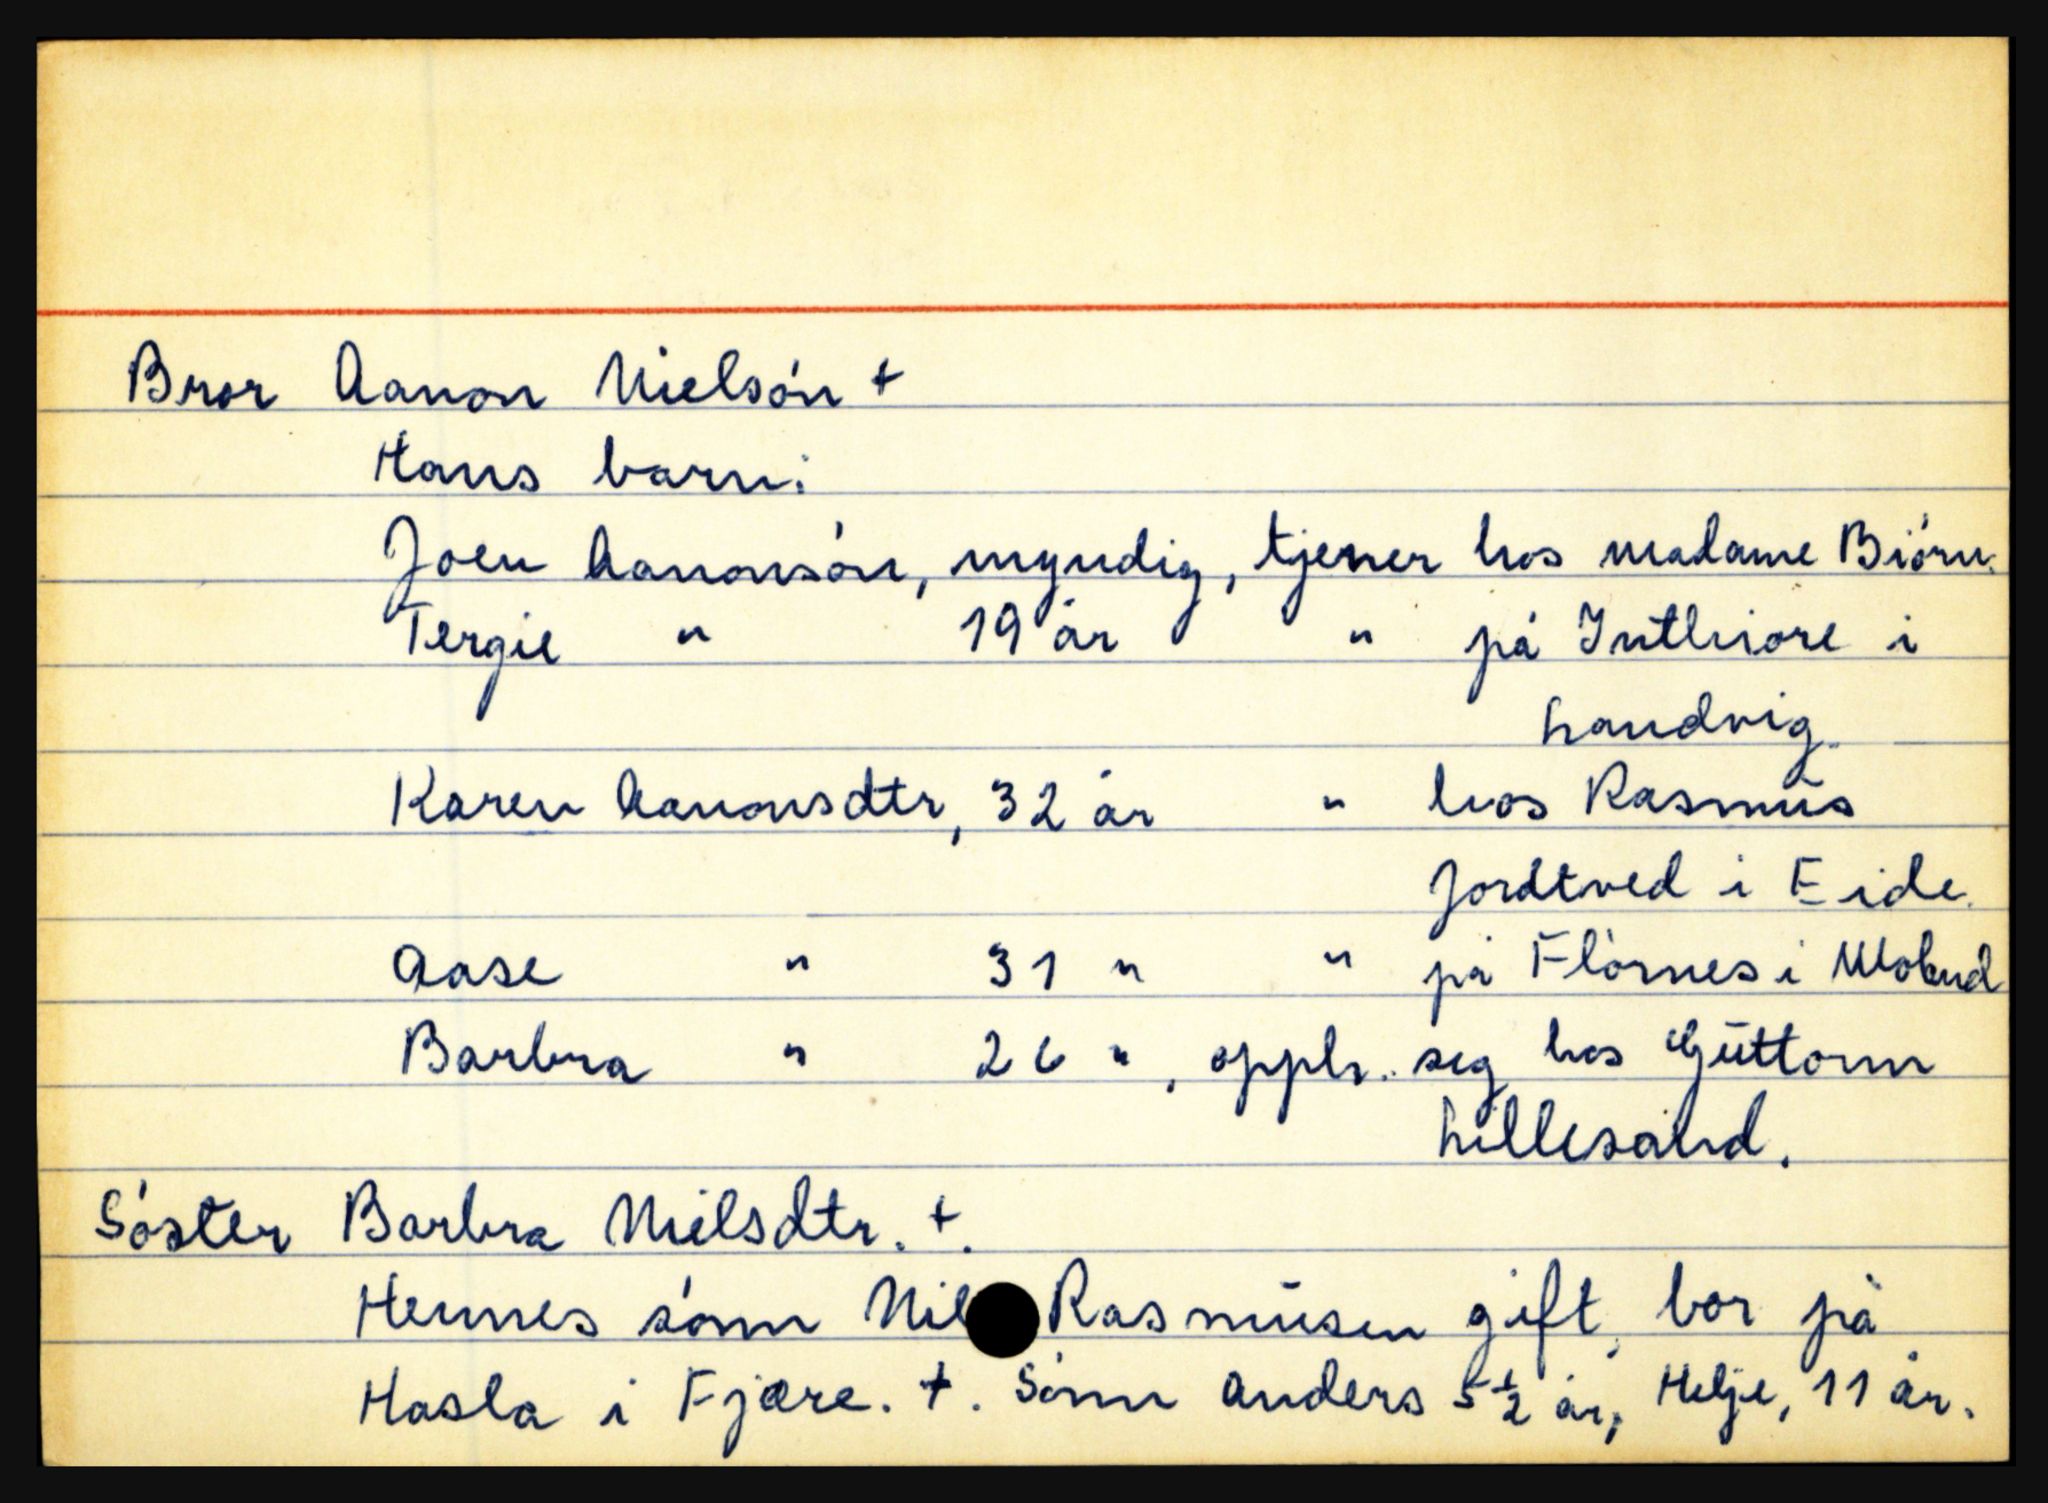 Bror Aanon Nielsón +
Hans barn:
Joen Aanonsón, myndig, tjener hos madame Biórn.
Tergie " 19 år " på Inthiore i
Landvig.
Karen Aanonsdtr, 32 år " hos Rasmus
Jordtved i Eide.
Aase " 31 " " på Flórnes i
Barbra " 26 ", opph. seg hos Guttorm
Lillesand.
Sóster Barbra Nielsdtr. +.
Hennes sónn Rasmusen gift, bor på
Hasla i Fjære. +. Sónn Anders 5½ år, Helje, 11 år.